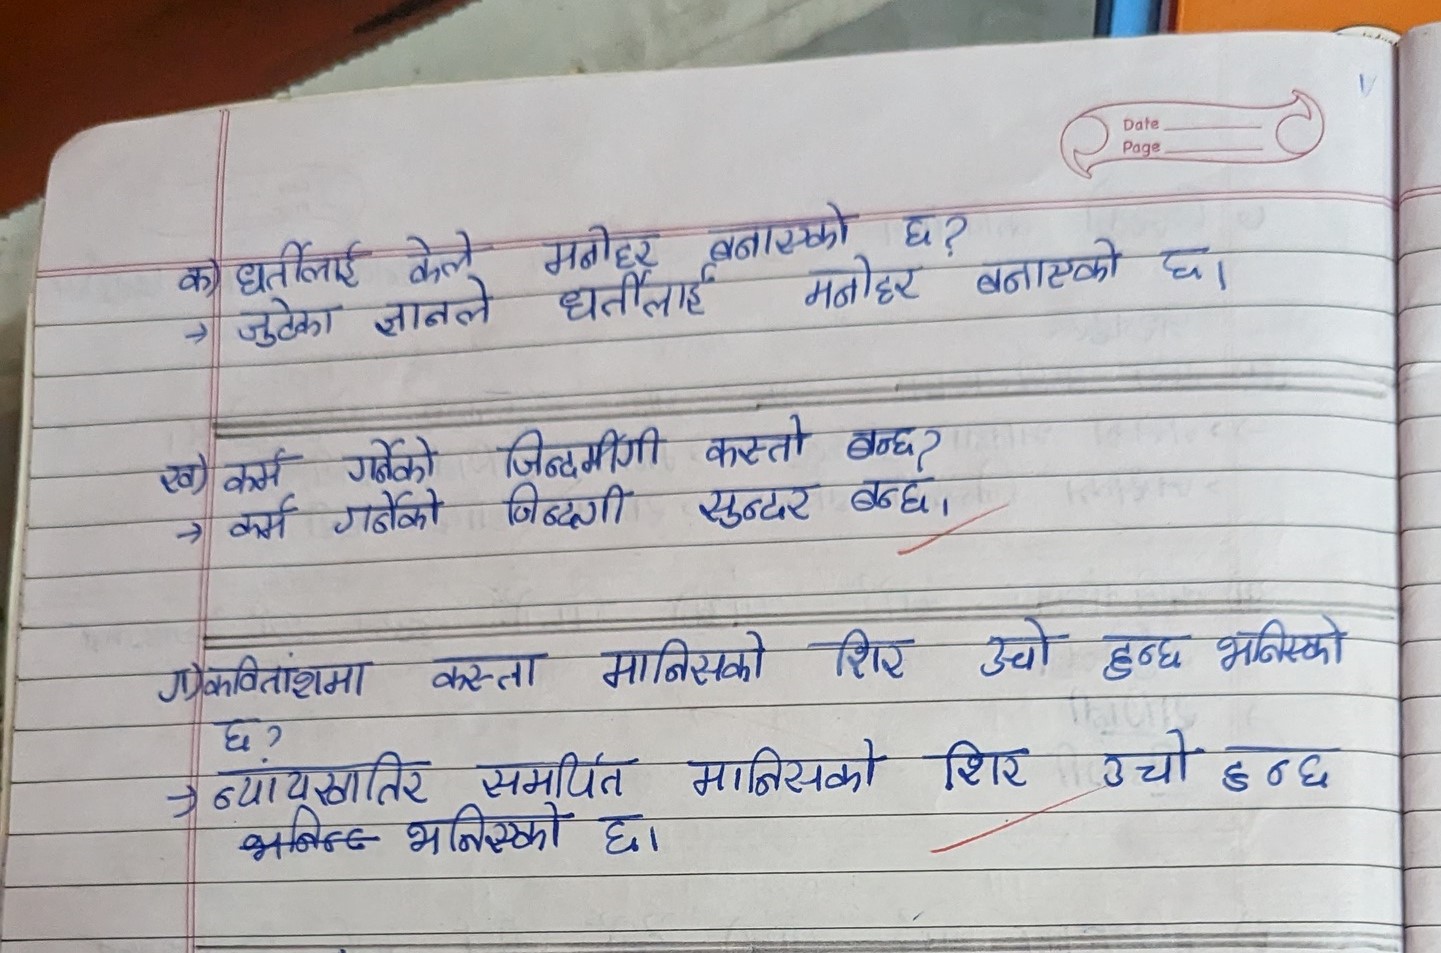 Date
Page
क) धर्तीलाई केले मनोहर बनाएको छ?
→ जुटेका ज्ञानले धर्तीलाई मनोहर बनाएको छ।
ख) कर्म गर्नेको जिन्दमीगी कस्तो बन्छ?
→ कर्म गर्नेको जिन्दगी सुन्दर बन्छ।
ग) कवितांशमा कस्ता मानिसको शिर उचो हुन्छ भनिएको
छ?
→ न्यायखातिर समर्पित मानिसको शिर उचो हुन्छ
भनिएको छ।